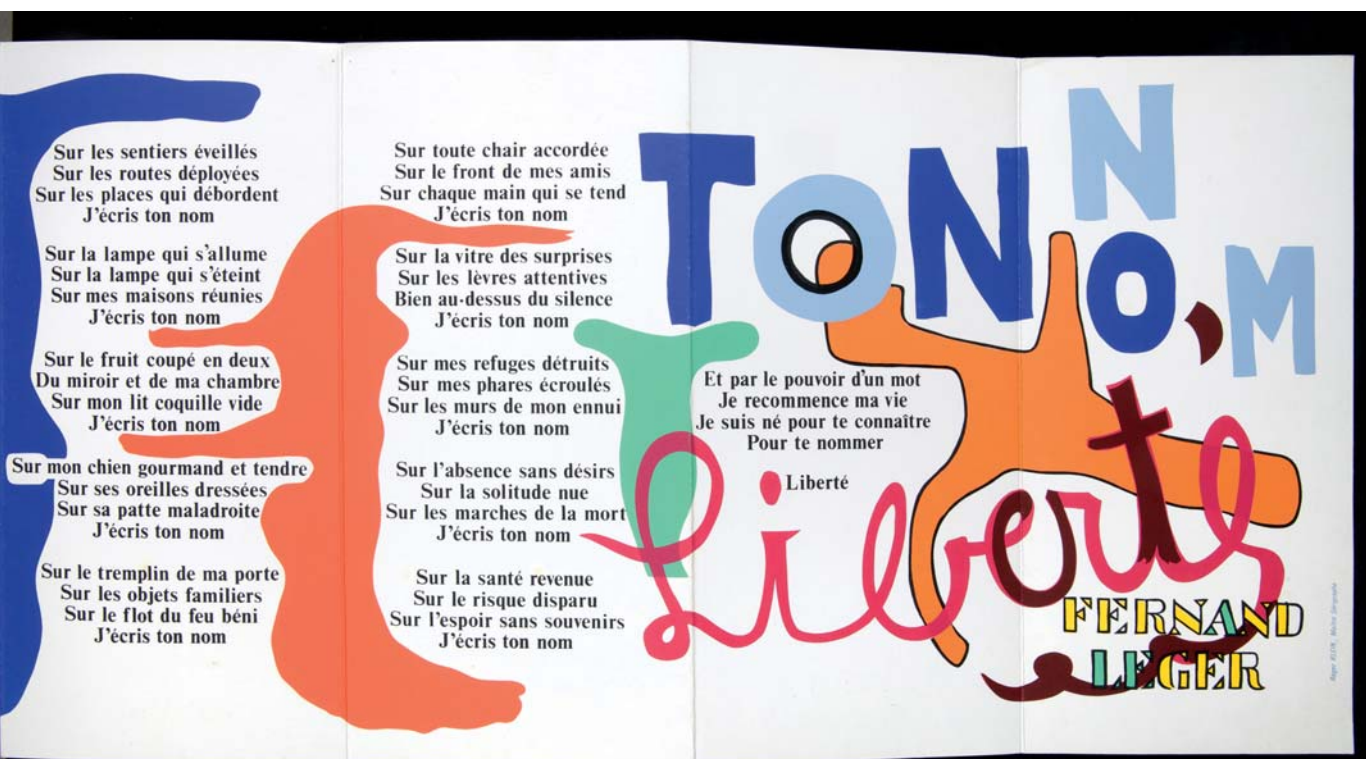 Sur les sentiers éveillés
Sur les routes déployées
Sur les places qui débordent
J'écris ton nom
Sur la lampe qui s'allume
Sur la lampe qui s'éteint
Sur mes maisons réunies
J'écris ton nom
Sur le fruit coupé en deux
Du miroir et de ma chambre
Sur mon lit coquille vide
J'écris ton nom
Sur mon chien gourmand et tendre
Sur ses oreilles dressées
Sur sa patte maladroite
J'écris ton nom
Sur le tremplin de ma porte
Sur les objets familiers
Sur le flot du feu béni
J'écris ton nom
Sur toute chair accordée
Sur le front de mes amis
Sur chaque main qui se tend
J'écris ton nom
Sur la vitre des surprises
Sur les lèvres attentives
Bien au-dessus du silence
J'écris ton nom
Sur mes refuges détruits
Sur mes phares écroulés
Sur les murs de mon ennui
J'écris ton nom
Sur l'absence sans désirs
Sur la solitude nue
Sur les marches de la mort
J'écris ton nom
Sur la santé revenue
Sur le risque disparu
Sur l'espoir sans souvenirs
J'écris ton nom
TON NOM,
Et par le pouvoir d'un mot
Je recommence ma vie
Je suis né pour te connaître
Pour te nommer
Liberté
Liberté
FERNAND
LEGER